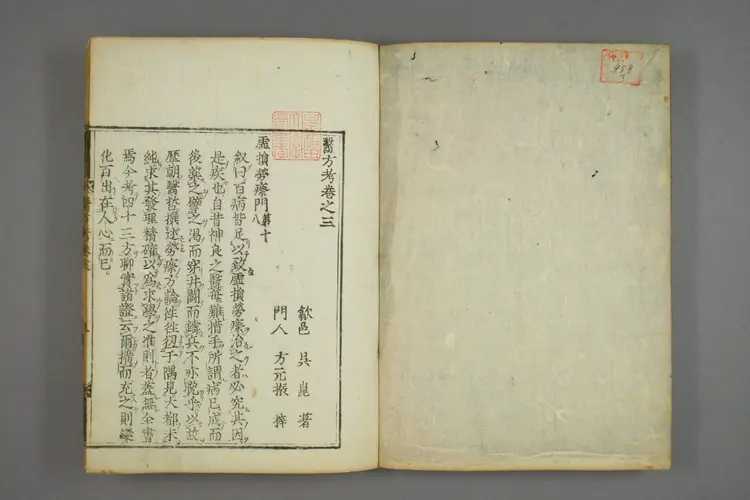 醫方考卷之三
歙邑 吳 崑 著
門人 方元振 梓
虛損勞瘵門第十八
叙曰百病皆足以致虛損勞瘵治之者必究其因
是疾也自昔神良之醫每難措手所謂病已成而
後藥之譬之渴而穿井鬬而鑄兵不亦晚乎以故
歷朝醫哲撰述勞瘵方論徃徃狃于隅見大都未
純求其發理精確以爲求學之准則者蓋無全書
焉今考四十三方聊實諸證云爾擴而充之則縷
化百出在人心而已
958
3